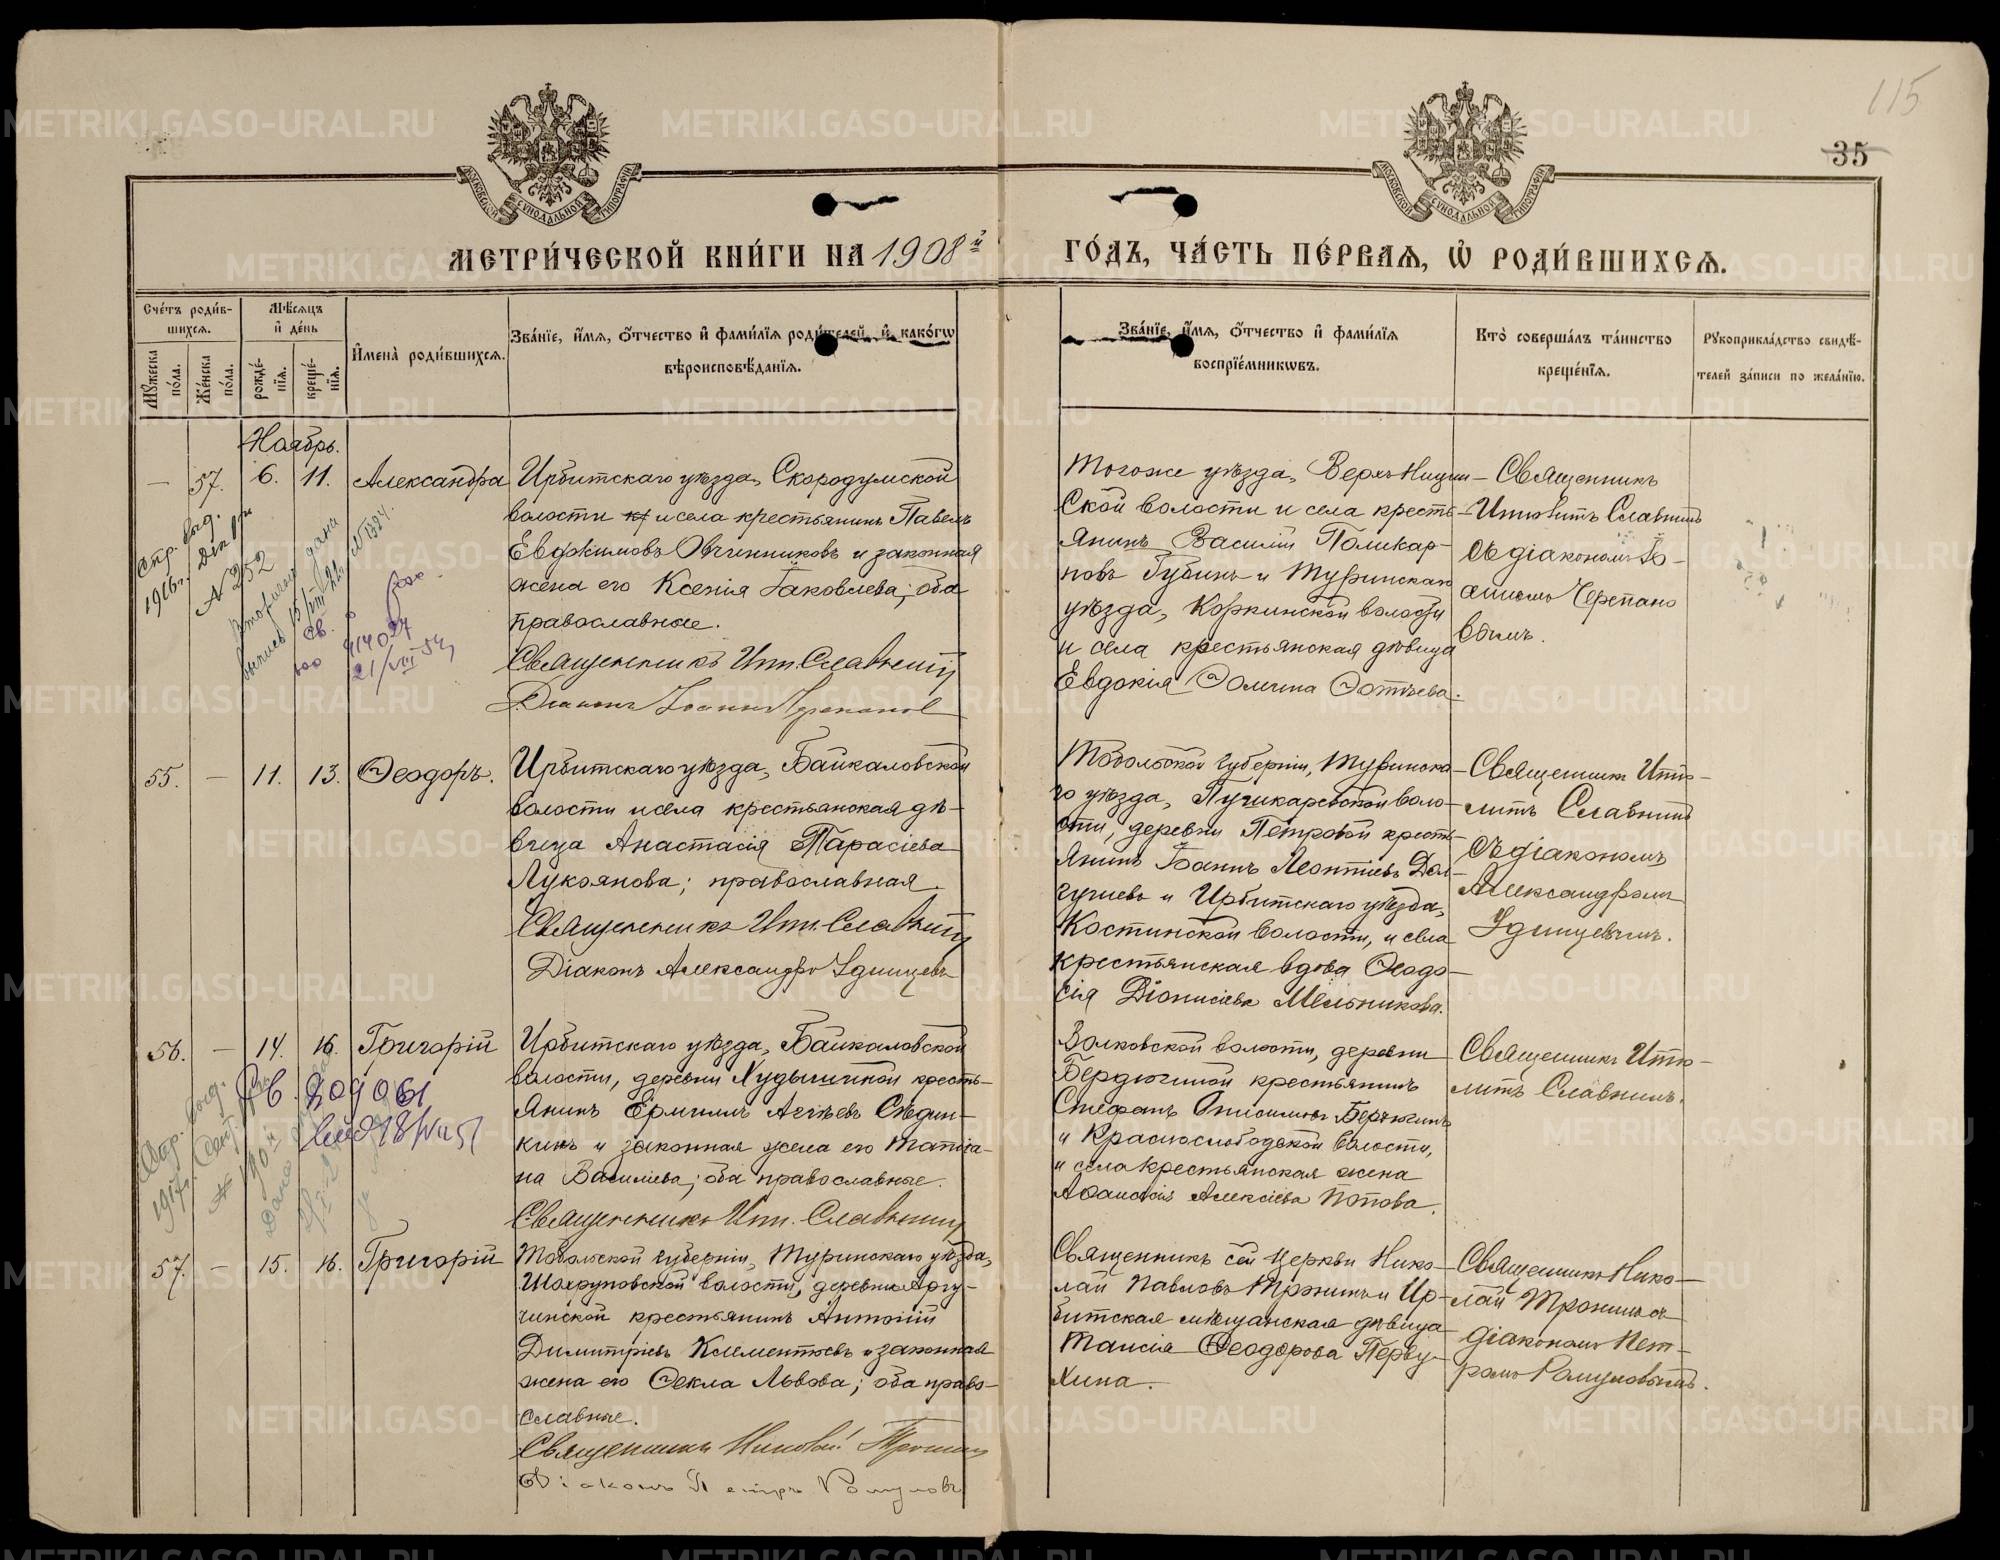 115
35
МОСКОВСКОЙ СѴНОДАЛЬНОЙ ТИПОГРАФІИ
МОСКОВСКОЙ СѴНОДАЛЬНОЙ ТИПОГРАФІИ
МЕТРИ́ЧЕСКОЙ КНИ́ГИ НА 1908й
ГО́ДЪ, ЧА́СТЬ ПЕ́РВАѦ, Ѡ҆ РОДИ́ВШИХСѦ.
Сче́тъ роди́в-
шихсѧ.
Мꙋжеска по́ла.
Же́нска по́ла.
Мѣ́сѧцъ
и҆ де́нь
рожде́-
нїѧ.
креще́-
нїѧ.
И҆мена̀ роди́вшихсѧ.
Зва́нїе, и҆́мѧ, ѻ҆́тчество и҆ фами́лїѧ роди́телей, и҆ како́гѡ
вѣроисповѣ́данїѧ.
Зва́нїе, и҆́мѧ, ѻ҆́тчество и҆ фами́лїѧ
воспрїе́мникѡвъ.
Кто̀ соверша́лъ та́инство
креще́нїѧ.
Рꙋкоприкла́дство свидѣ́-
телей за́писи по жела́нїю.
Ноябрь.
— 57. 6. 11. Александра
Ирбитскаго уѣзда, Скородумской
волости и села крестьянинъ Павелъ
Евфимовъ Овчинниковъ и законная
жена его Ксенія Іаковлева; оба
православные.
Священникъ Ип. Славнинъ
Діаконъ Іоаннъ Черепановъ
Тогоже уѣзда, Верхъ-Ницин-
ской волости и села кресть-
янинъ Василій Поликар-
повъ Губинъ и Туринскаго
уѣзда, Коркинской волости
и села крестьянская дѣвица
Евдокія Фомина Фотѣева.
Священникъ
Ипполитъ Славнинъ
съ діакономъ Іо-
анномъ Черепано
вымъ.
1916г.
№ 252
дана
914027
21/VIII
55. — 11. 13. Ѳеодоръ.
Ирбитскаго уѣзда, Байкаловской
волости и села крестьянская дѣ-
вица Анастасія Тарасіева
Лукоянова; православная.
Священникъ Ип. Славнинъ
Діаконъ Александръ Удинцевъ
Тобольской губерніи, Туринска-
го уѣзда, Пушкаревской воло-
сти, деревни Петровой кресть-
янинъ Іоаннъ Леонтіевъ Дол-
гушевъ и Ирбитскаго уѣзда,
Костинской волости, и села
крестьянская вдова Ѳеодо-
сія Діонисіева Мельникова.
Священникъ Иппо-
литъ Славнинъ
съ діакономъ
Александромъ
Удинцевымъ.
56. — 14. 16. Григорій
Ирбитскаго уѣзда, Байкаловской
волости, деревни Худышкиной кресть-
янинъ Ермилъ Агѣевъ Сѣдин-
кинъ и законная жена его Татіа-
на Василіева; оба православные.
Священникъ Ип. Славнинъ
Волковской волости, деревни
Бердюгиной крестьянинъ
Стефанъ Онисимовъ Бердюгинъ
и Краснослободской волости,
и села крестьянская жена
Аѳанасія Алексіева Попова.
Священникъ Иппо-
литъ Славнинъ.
1917г.
дана
57. — 15. 16. Григорій
Тобольской губерніи, Туринскаго уѣзда,
Шахруповской волости, деревни Аргу-
чинской крестьянинъ Антоній
Димитріевъ Клементьевъ и законная
жена его Ѳекла Львова; оба право-
славные.
Священникъ Николай Тронинъ
Діаконъ Петръ Ромуловъ
Священникъ сей церкви Нико-
лай Павловъ Тронинъ и Ир-
битская мѣщанская дѣвица
Таисія Ѳеодорова Перву-
хина.
Священникъ Нико-
лай Тронинъ съ
діакономъ Пет-
ромъ Ромуловымъ.
METRIKI.GASO-URAL.RU